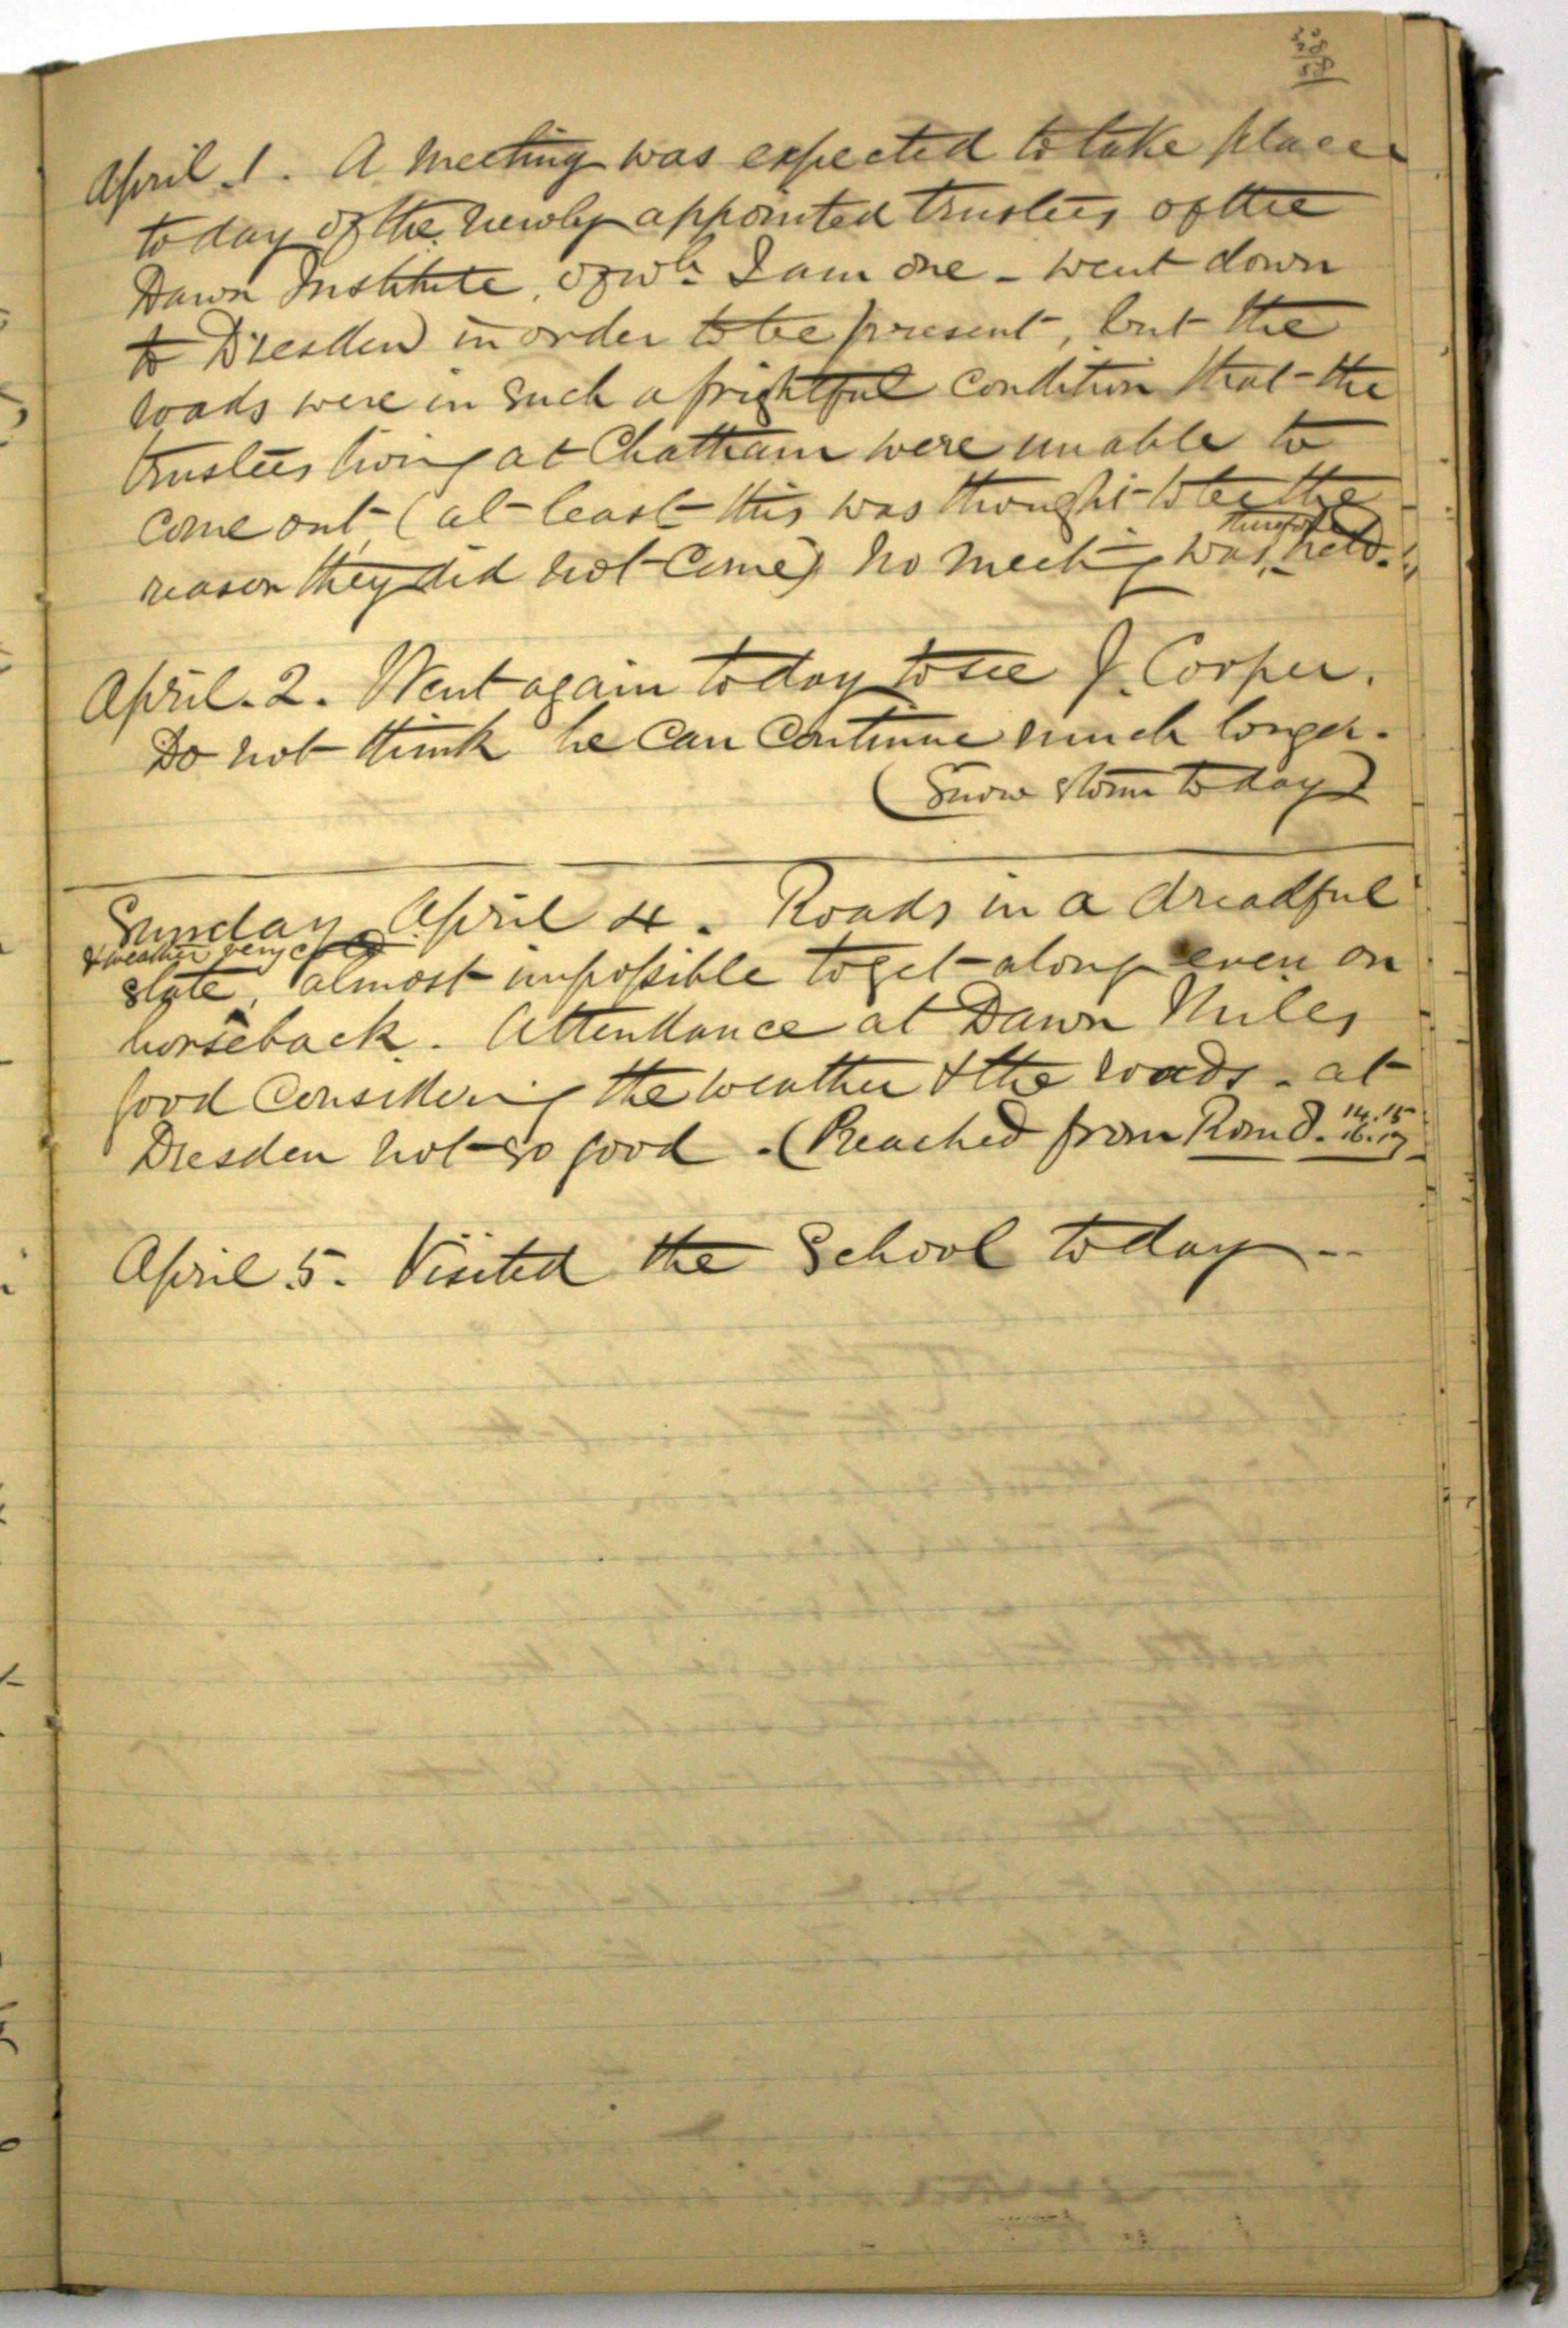 April 1. A meeting was expected to take place
today of the newly appointed trustees of the
Dawn Institute, of wh. I am one - went down
to Dresden in order to be present, but the
roads were in such a frightful condition that the
trustees living at Chatham were unable to
come out (at least this was thought to be the
reason they did not come) no meeting was therefore held.
April. 2. Went again today to see J. Cooper.
Do not think he can continue much longer.
(Snow storm today)
Sunday April 4. Roads in a dreadful
& weather very cold
state, almost impossible to get along even on
horseback. Attendance at Dawn Mills
good considering the weather & the roads - at
Dresden not so good. (Preached from Rom 8. 14.15
16.17
April 5. Visited the School today --